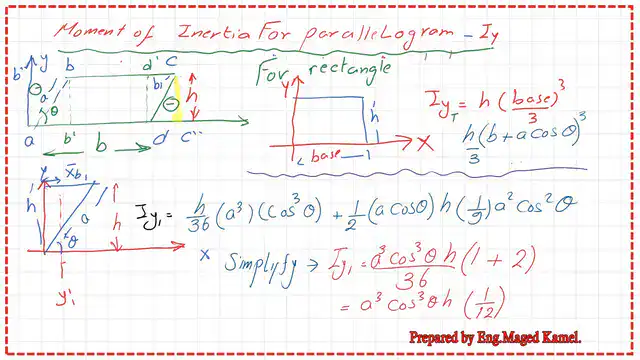 Moment of Inertia For parallelogram - Iy
For rectangle
y
b'
b
d'
c
b₁'
a
θ
h
a
b'
b
d
c''
y
h
x
base
Iy_T = h (base)³/3
h/3 (b + a cosθ)³
y
x̄b₁
h
a
h
θ
y'₁
x
Iy₁ = h/36 (a³)(cos³θ) + 1/2 (a cosθ) h (1/9) a² cos²θ
Simplyfy → Iy₁ = a³ cos³θ h/36 (1 + 2)
= a³ cos³θ h (1/12)
Prepared by Eng.Maged Kamel.